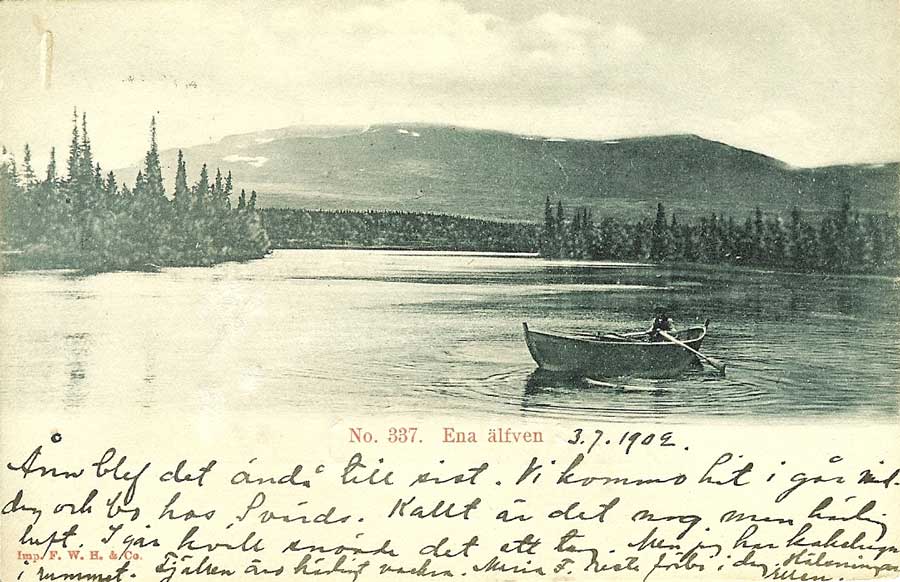 No. 337. Ena älfven 3.7.1902.
Ånn blef det ändå till sist. Vi kommo hit i går mid-
dag och bo hos Svärds. Kallt är det nog men härlig
luft. I går kväll snöade det ett tag. Men jag har kakelugn
Imp. F. W. H. & Co.
i rummet. Fjällen äro härligt vackra. Maria F. reste förbi i dag. Hälsningar